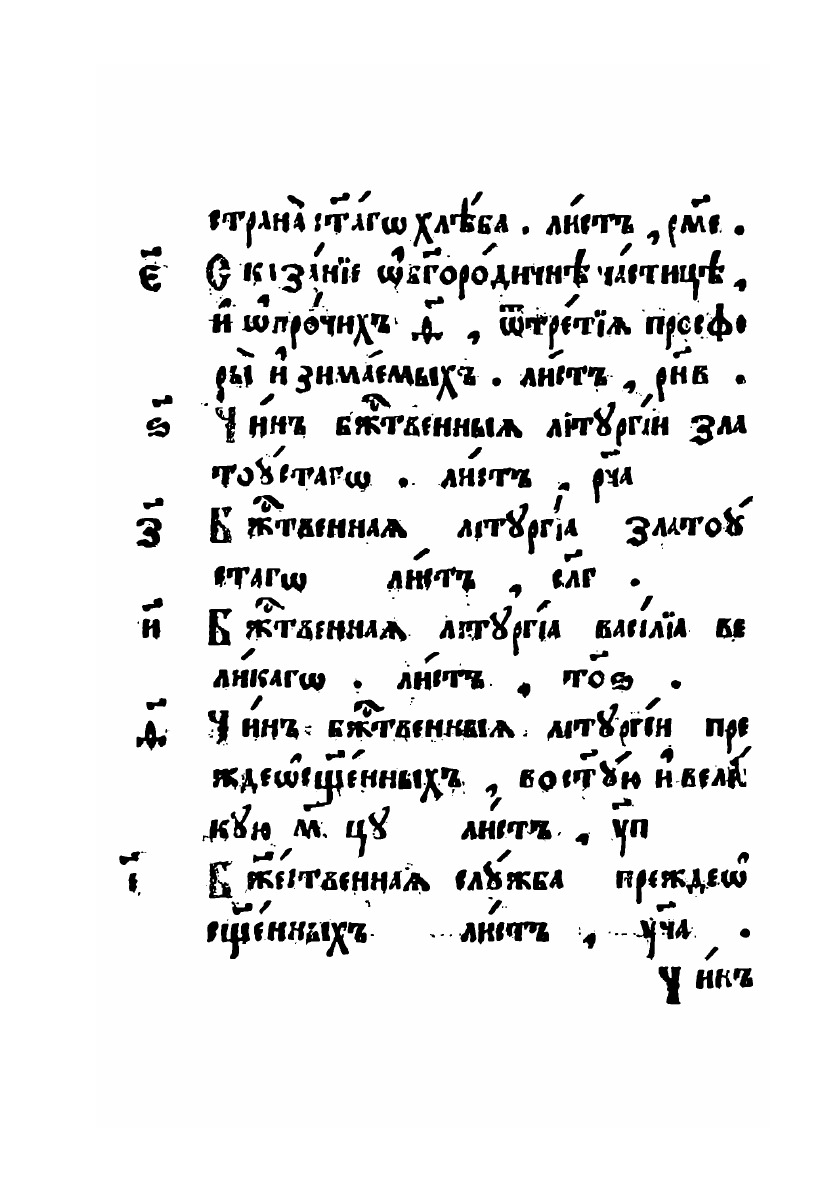 страна̀ ст҃а́гѡ хлѣ́ба . ли́стъ , рм҃е .
є҃ Сказа́нїе ѡ҆бг҃оро́дичнѣ ча́стицѣ ,
и҆ ѡ҆про́чихъ ѳ҃ , ѿтре́тїѧ просфо
ры̀ и҆зима́емыхъ . ли́стъ , рн҃в .
ѕ҃ Чи́нъ бж҃твенныѧ літꙋргі́и зла
тоꙋ́стагѡ . ли́стъ , рч҃а
з҃ Бж҃твеннаѧ літꙋргі́а златоꙋ́
стагѡ ли́стъ , сл҃г .
и҃ Бж҃твеннаѧ літꙋргі́а васі́лїа ве
ли́кагѡ . ли́стъ , то҃ѕ .
ѳ҃ Чи́нъ бж҃твенныѧ літꙋргі́и пре
ждеѡ҆сщ҃е́нныхъ , вост҃ꙋ́ю и҆ вели́
кꙋю м҃цꙋ ли́стъ , ꙋ҃п
і҃ Бж҃е́ственнаѧ слꙋ́жба преждеѡ҆
сщ҃е́нныхъ ли́стъ , ꙋч҃а .
Чи́нъ